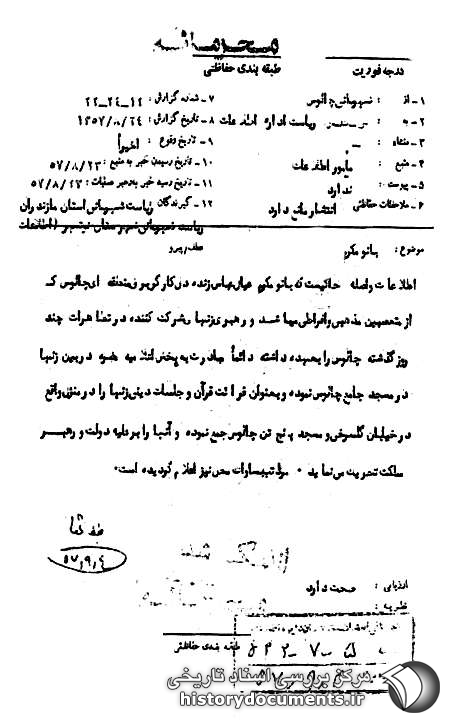 محرمانه
درجه فوریت طبقه بندی حفاظتی
۱- از : شهربانی چالوس ۷- شماره گزارش : ۱۲-۲۴-۲۲
۲- به : ریاست اداره اطلاعات ۸- تاریخ گزارش : ۱۳۵۷/۸/۲۴
۳- منشاء : - ۹- تاریخ وقوع : اخیرا
۴- منبع : مأمور اطلاعات ۱۰- تاریخ رسیدن خبر به منبع : ۵۷/۸/۲۳
۵- پیوست : ندارد ۱۱- تاریخ رسیدن خبر به رهبر عملیات : ۵۷/۸/۲۳
۶- ملاحظات حفاظتی : انتشار مانع دارد ۱۲- گیرندگان ریاست شهربانی استان مازندران
ریاست شهربانی شهرستان (اطلاعات
موضوع : بانو مکرم عطف/پیرو
اطلاعات واصله حاکیست که بانو مکرم زنده دل کارگر بن منطقه ای چالوس که
از متعصبین مذهبی و افراطی میباشد و رهبری زنهای شرکت کننده در تظاهرات چند
روز گذشته چالوس را بعهده داشته دائماً مبادرت به پخش اعلامیه مضره در بین زنها
در مسجد جامع چالوس نموده و بعنوان قرائت قرآن و جلسات دینی زنها را در منزل واقع
در خیابان گلسرخی و مسجد پنج تن چالوس جمع نموده و آنها را بر علیه دولت و رهبر
مملکت تحریک می نماید . مراتب بساواک محل نیز اعلام گردیده است.
۵۷/۹/۴
ارزیابی : صحت دارد
نظریه :
طبقه بندی حفاظتی
مرکز بررسی اسناد تاریخی
historydocuments.ir